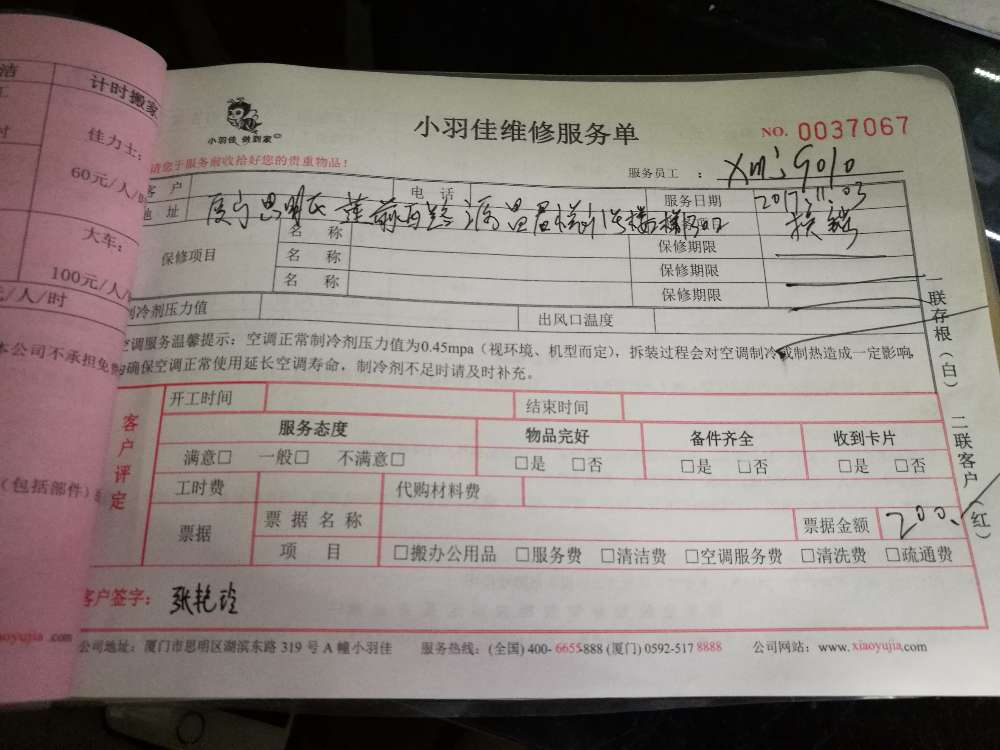 洁
计时搬家
工
时
佳力士：
60元/人/时
大车：
100元/人/
元/人/时
本公司不承担免费
（包括部件）
aoyujia.com
小羽佳 做到家
小羽佳维修服务单
NO. 0037067
请您于服务前收拾好您的贵重物品！
服务员工 ： 9010
客 户
电 话
服务日期 2017.11.03
地 址
保修项目
名 称
名 称
保修期限
名 称
保修期限
保修期限
制冷剂压力值
出风口温度
空调服务温馨提示：空调正常制冷剂压力值为0.45mpa（视环境、机型而定），拆装过程会对空调制冷或制热造成一定影响，
为确保空调正常使用延长空调寿命，制冷剂不足时请及时补充。
一联存根（白）
二联客户（红）
客户评定
开工时间
结束时间
服务态度
物品完好
备件齐全
收到卡片
满意□ 一般□ 不满意□
□是 □否
□是 □否
□是 □否
工时费
代购材料费
票据
票 据 名 称
票据金额 200
项 目
□搬办公用品 □服务费 □清洁费 □空调服务费 □清洗费 □疏通费
客户签字： 张艳玲
公司地址：厦门市思明区湖滨东路 319 号 A 幢小羽佳 服务热线：(全国) 400- 6655-888 (厦门) 0592-517 8888 公司网站：www.xiaoyujia.com